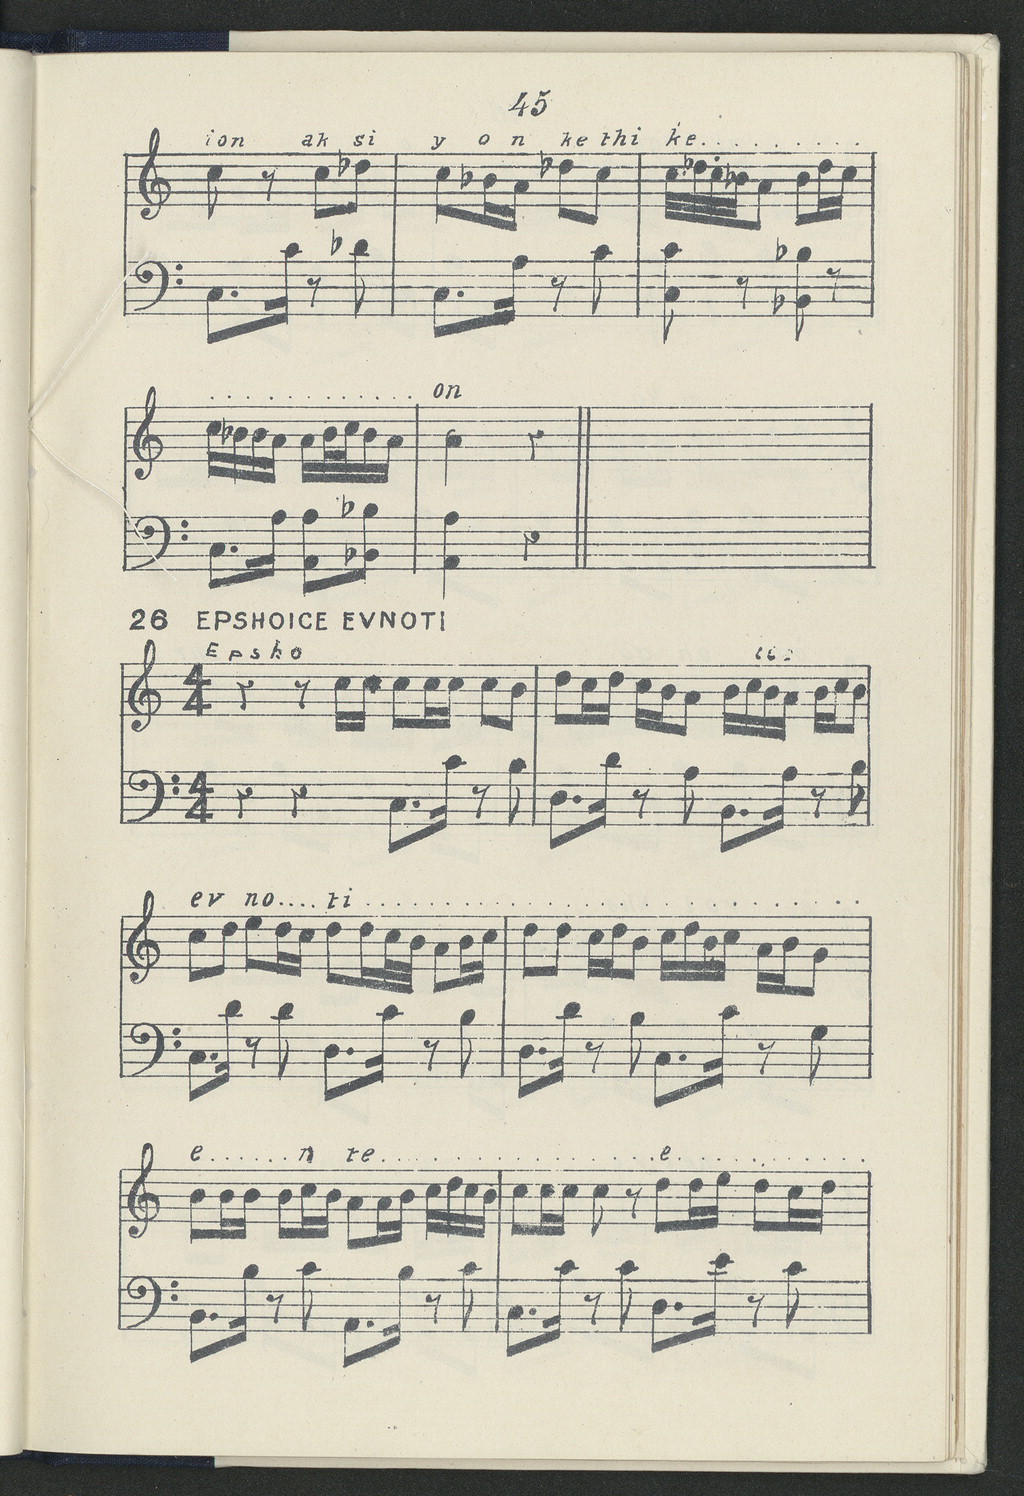 45
ion ak si y o n ke thi ke..........
............. on
26 EPSHOICE EVNOTI
Epsho
ev no.... ti..........................
e......n te...................e.............